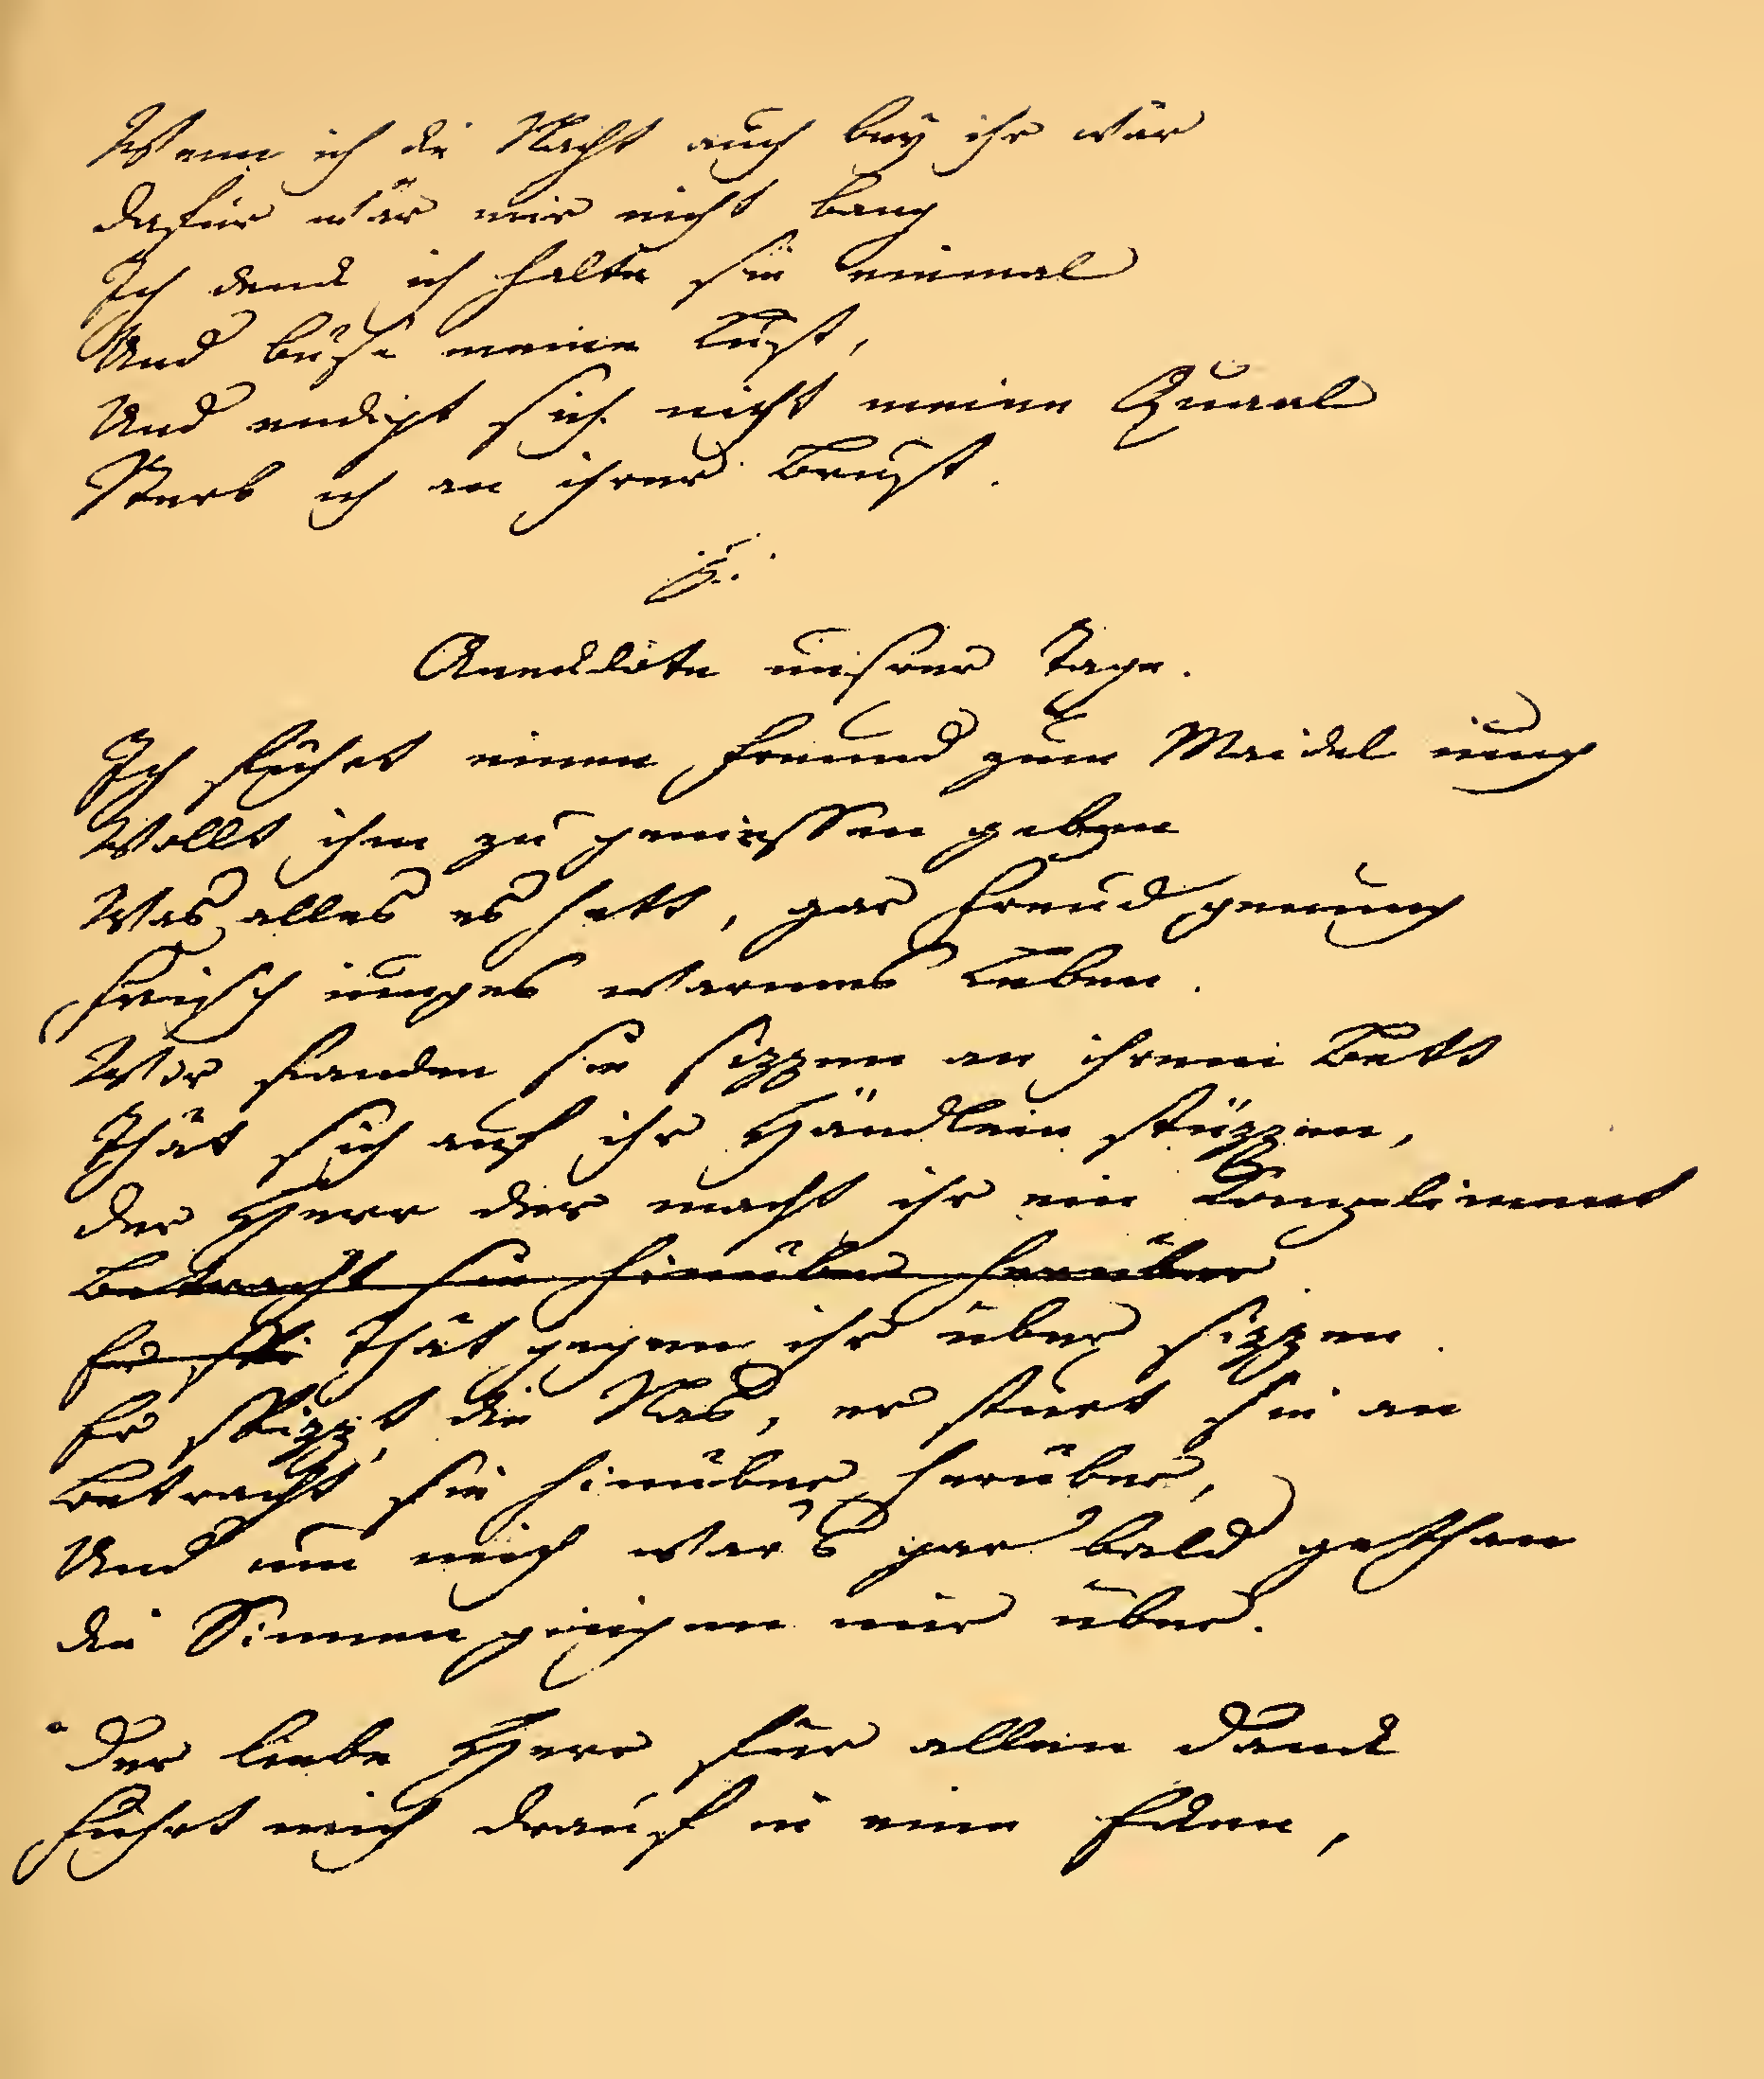 Wenn ich die Nacht auch bey ihr wär
dafür wär mir nicht bang
Ich denck ich halte sie einmal
Und büse meine Lust,
Und endigt sich nicht meine Quaal
Sterb ich an ihrer Brust.
Aneckdote unsrer Tage.
Ich führt einen Freund zum Maidel iung
Wollt ihm zu geniessen geben
Was alles es hett, gar Freud genung
Frisch iunges warmes Leben.
Wir fanden sie sizzen an ihrem Bett
Thät sich auf ihr Händlein stüzzen,
der Herr der macht ihr ein Compliment
Betracht sie hinüber herüber
Er thät gegen ihr über sizzen.
Er spizzt die Nas, er sturt sie an
Betracht sie hinüber herüber,
Und um mich war's gar bald gethan
die Sinnen gingen mir über.
Der liebe Herr für allen Danck
Führt mich drauf in eine Ecken,